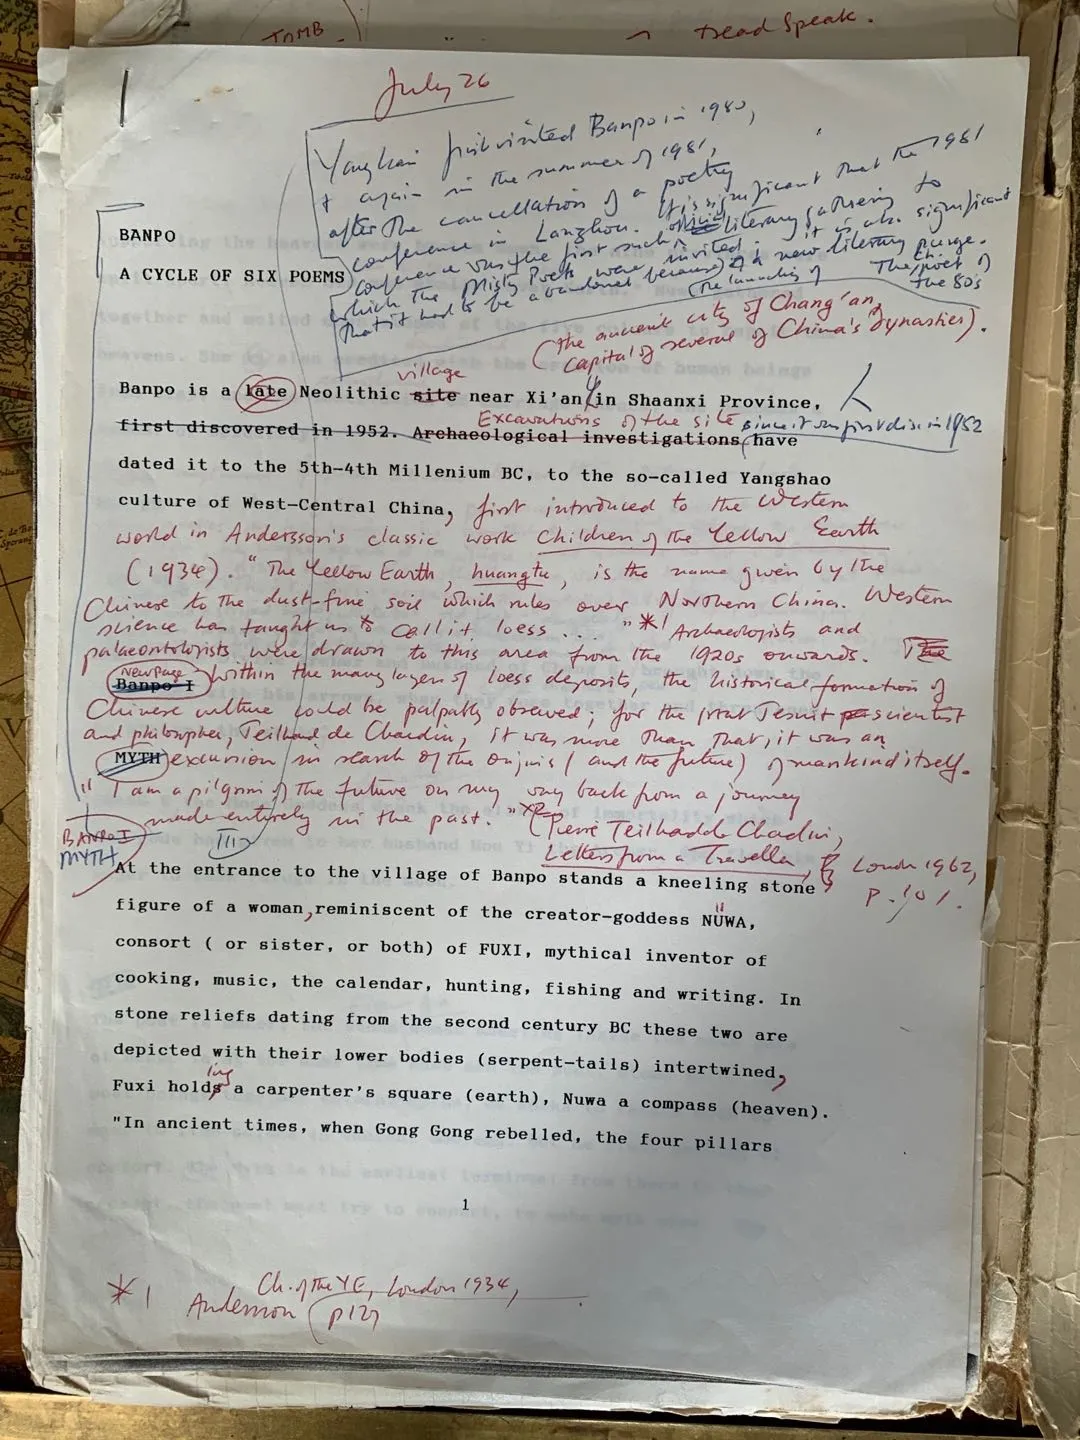 TOMB.
Dead Speak.
July 26
Yang Lian first visited Banpo in 1980,
& again in the summer of 1981,
after the cancellation of a poetry
conference in Lanzhou. It is significant that the 1981
conference was the first such official literary gathering to
which the Misty Poets were invited; it is also significant
that it had to be abandoned because of a new literary purge.
(the launching of
The poet of
the 80s
BANPO
A CYCLE OF SIX POEMS
(the ancient city of Chang'an,
capital of several of China's dynasties).
village
Banpo is a late Neolithic site near Xi'an in Shaanxi Province,
Excavations of the site since it was first disc. in 1952
first discovered in 1952. Archaeological investigations have
dated it to the 5th-4th Millenium BC, to the so-called Yangshao
culture of West-Central China, first introduced to the Western
world in Andersson's classic work Children of the Yellow Earth
(1934). "The Yellow Earth, huangtu, is the name given by the
Chinese to the dust-fine soil which rules over Northern China. Western
science has taught us to call it loess ... "*1 Archaeologists and
palaeontologists were drawn to this area from the 1920s onwards. The
New page
Banpo I within the many layers of loess deposits, the historical formation of
Chinese culture could be palpably observed; for the great Jesuit scientist
and philosopher, Teilhard de Chardin, it was more than that, it was an
MYTH excursion in search of the origins (and the future) of mankind itself.
"I am a pilgrim of the future on my way back from a journey
made entirely in the past." (Pierre Teilhard de Chardin,
BANPO I
MYTH
Letters from a Traveller, London 1962,
p. 101.
At the entrance to the village of Banpo stands a kneeling stone
figure of a woman, reminiscent of the creator-goddess NÜWA,
consort ( or sister, or both) of FUXI, mythical inventor of
cooking, music, the calendar, hunting, fishing and writing. In
stone reliefs dating from the second century BC these two are
depicted with their lower bodies (serpent-tails) intertwined,
ing
Fuxi holds a carpenter's square (earth), Nuwa a compass (heaven).
"In ancient times, when Gong Gong rebelled, the four pillars
1
*1 Andersson Ch. of the YE, London 1934,
p127